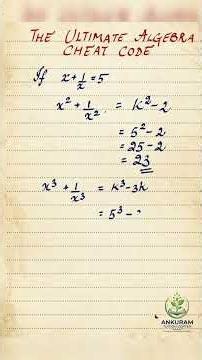 THE ULTIMATE ALGEBRA
CHEAT CODE
If x + 1/x = 5
x² + 1/x² = k² - 2
= 5² - 2
= 25 - 2
= 23
x³ + 1/x³ = k³ - 3k
= 5³ -
ANKURAM